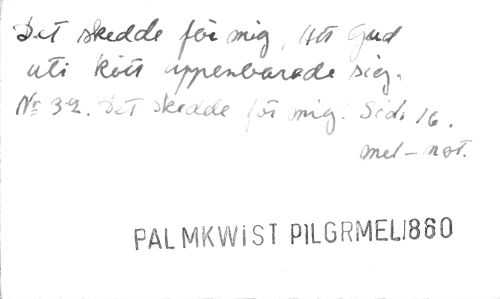 Det skedde för mig, Att Gud
uti kött uppenbarade sig.
Nr 32. Det skedde för mig! Sid. 16.
mel-not.
PALMKWIST PILGRMEL1860